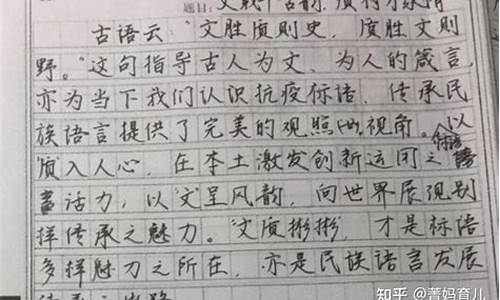 题目:
古语云:“文胜质则史，质胜文则
野。”这句指导古人为文、为人的箴言，
亦为当下我们认识抗疫标语，传承民
族语言提供了完美的观照视角。以
“质”入人心，在本土激发创新运用之标语
活力，以“文”呈风韵，向世界展现别
样传承之魅力。“文质彬彬”，才是标语
多样魅力之所在，亦是民族语言发展
知乎 @菁妈育儿